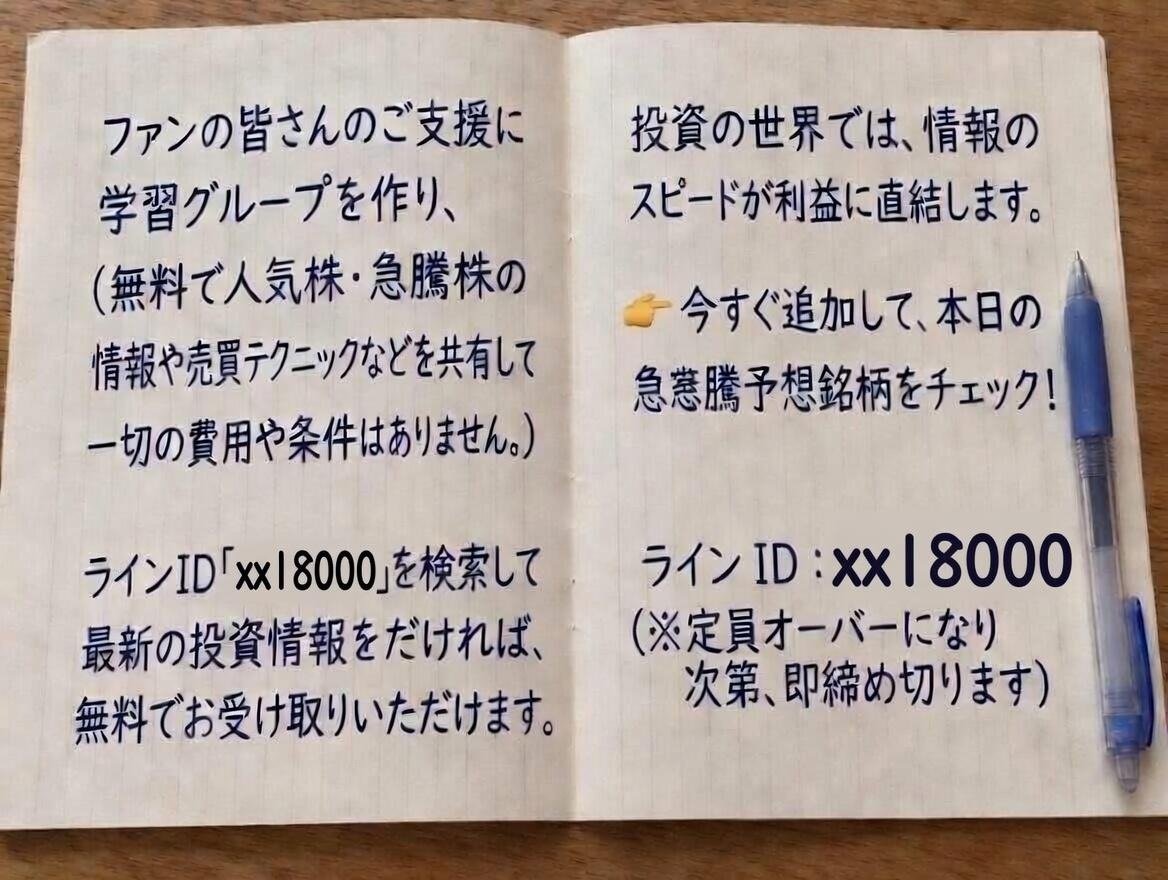 ファンの皆さんのご支援に
学習グループを作り、
(無料で人気株・急騰株の
情報や売買テクニックなどを共有して
一切の費用や条件はありません。)
ラインID「xx18000」を検索して
最新の投資情報をだければ、
無料でお受け取りいただけます。
投資の世界では、情報の
スピードが利益に直結します。
👉今すぐ追加して、本日の
騰予想銘柄をチェック!
ライン ID:xx18000
(※定員オーバーになり
次第、即締め切ります)